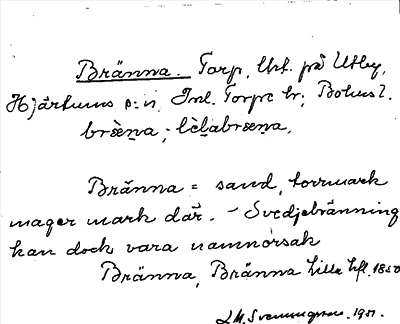 Bränna. Torp, Utk. på Utby,
Hjärtums s:n, Inl. Torpe hr; Bohusl.
bræna; lèlabræna.
Bränna = sand, torrmark
mager mark där. – Svedjebränning
kan dock vara namnorsak
Bränna, Bränna Lilla hfl. 1850
1951.